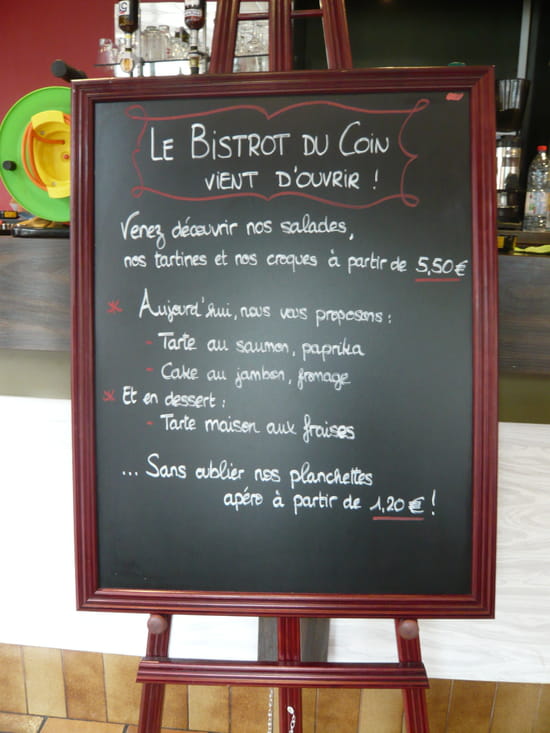 LE BISTROT DU COIN
VIENT D'OUVRIR !
Venez découvrir nos salades,
nos tartines et nos croques à partir de 5,50 €
* Aujourd'hui, nous vous proposons :
- Tarte au saumon, paprika
- Cake au jambon, fromage
* Et en dessert :
- Tarte maison aux fraises
... Sans oublier nos planchettes
apéro à partir de 1,20 € !